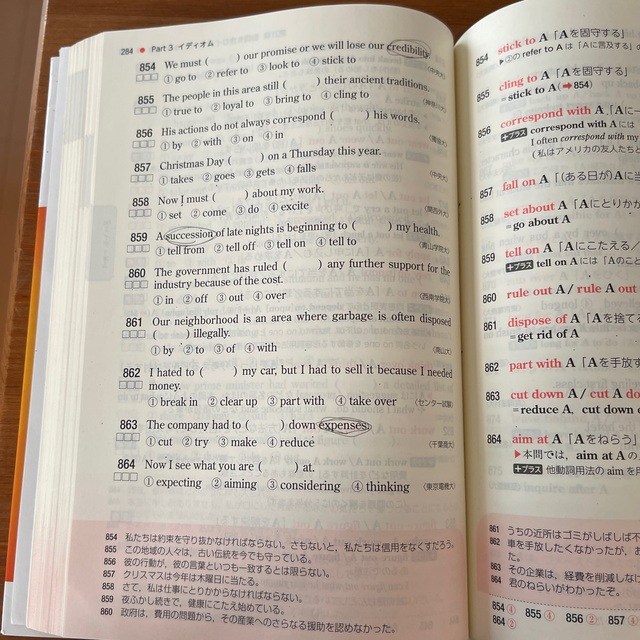 284 ● Part 3 イディオム
854 We must ( ) our promise or we will lose our credibility.
① go to ② refer to ③ look to ④ stick to (中央大)
855 The people in this area still ( ) their ancient traditions.
① true to ② loyal to ③ bring to ④ cling to
856 His actions do not always correspond ( ) his words.
① by ② with ③ on ④ in
857 Christmas Day ( ) on a Thursday this year.
① takes ② goes ③ gets ④ falls (中央大)
858 Now I must ( ) about my work.
① set ② come ③ do ④ excite (関西外大)
859 A succession of late nights is beginning to ( ) my health.
① tell from ② tell off ③ tell on ④ tell to (青山学院大)
860 The government has ruled ( ) any further support for the
industry because of the cost.
① in ② off ③ out ④ over (西南学院大)
861 Our neighborhood is an area where garbage is often disposed
( ) illegally.
① by ② to ③ of ④ with
862 I hated to ( ) my car, but I had to sell it because I needed
money.
① break in ② clear up ③ part with ④ take over (センター試験)
863 The company had to ( ) down expenses.
① cut ② try ③ make ④ reduce (千葉商大)
864 Now I see what you are ( ) at.
① expecting ② aiming ③ considering ④ thinking (東京電機大)
854 私たちは約束を守り抜かなければならない。さもないと、私たちは信用をなくすだろう。
855 この地域の人々は、古い伝統を今でも守っている。
856 彼の行動が、彼の言葉といつも一致するとは限らない。
857 クリスマスは今年は木曜日に当たる。
858 さて、私は仕事にとりかからなければならない。
859 夜ふかし続きで、健康にこたえ始めている。
860 政府は、費用の問題から、その産業へのさらなる援助を認めなかった。
854 stick to A「Aを固守する」
▶②の refer to A は「Aに言及する」
855 cling to A「Aを固守する」
= stick to A (➡854)
856 correspond with A「Aに
+プラス correspond with A には
I often correspond with my
(私はアメリカの友人たちと
857 fall on A「(ある日が)Aに当
858 set about A「Aにとりか
= go about A
859 tell on A「Aにこたえる/
+プラス tell on A には「Aのこと
860 rule out A / rule A out
861 dispose of A「Aを捨て
= get rid of A
862 part with A「Aを手放す
863 cut down A / cut A do
= reduce A, cut down o
864 aim at A「Aをねらう」
▶本問では、aim at A の
+プラス 他動詞用法の aim を用
861 うちの近所はゴミがしばしば不
862 車を手放したくなかったが、お
た。
863 その企業は、経費を削減しな
864 君のねらいがわかったぞ。
854 ④ 855 ④ 856 ② 857 ④